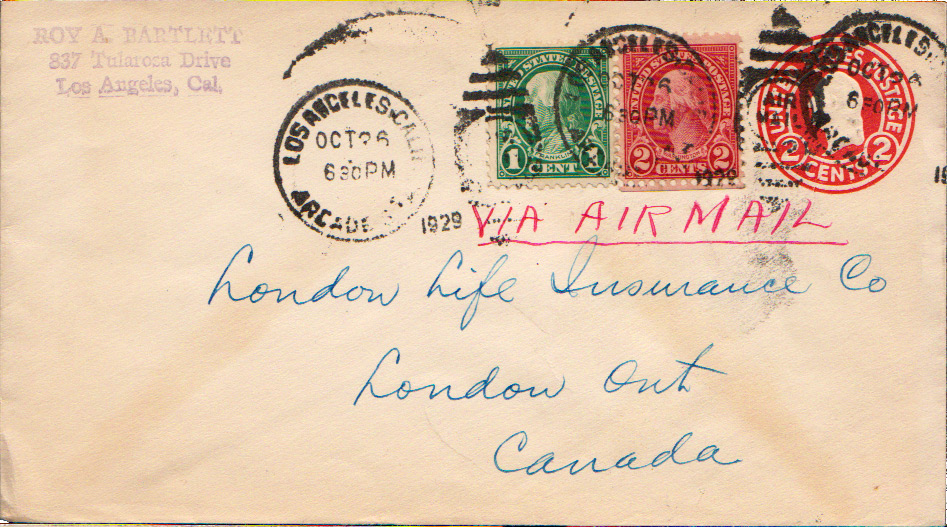 ROY A. BARTLETT
837 Tularosa Drive
Los Angeles, Cal.
LOS ANGELES, CALIF.
OCT 26
6 30 PM
ARCADE
1929
UNITED STATES POSTAGE
FRANKLIN
1 CENT 1
ANGELES
OCT 26
6 30 PM
UNITED STATES POSTAGE
WASHINGTON
2 CENTS 2
1929
LOS ANGELES
OCT 26
6 30 PM
AIR
MAIL
POSTAGE
2 CENTS 2
VIA AIR MAIL
London Life Insurance Co
London Ont
Canada